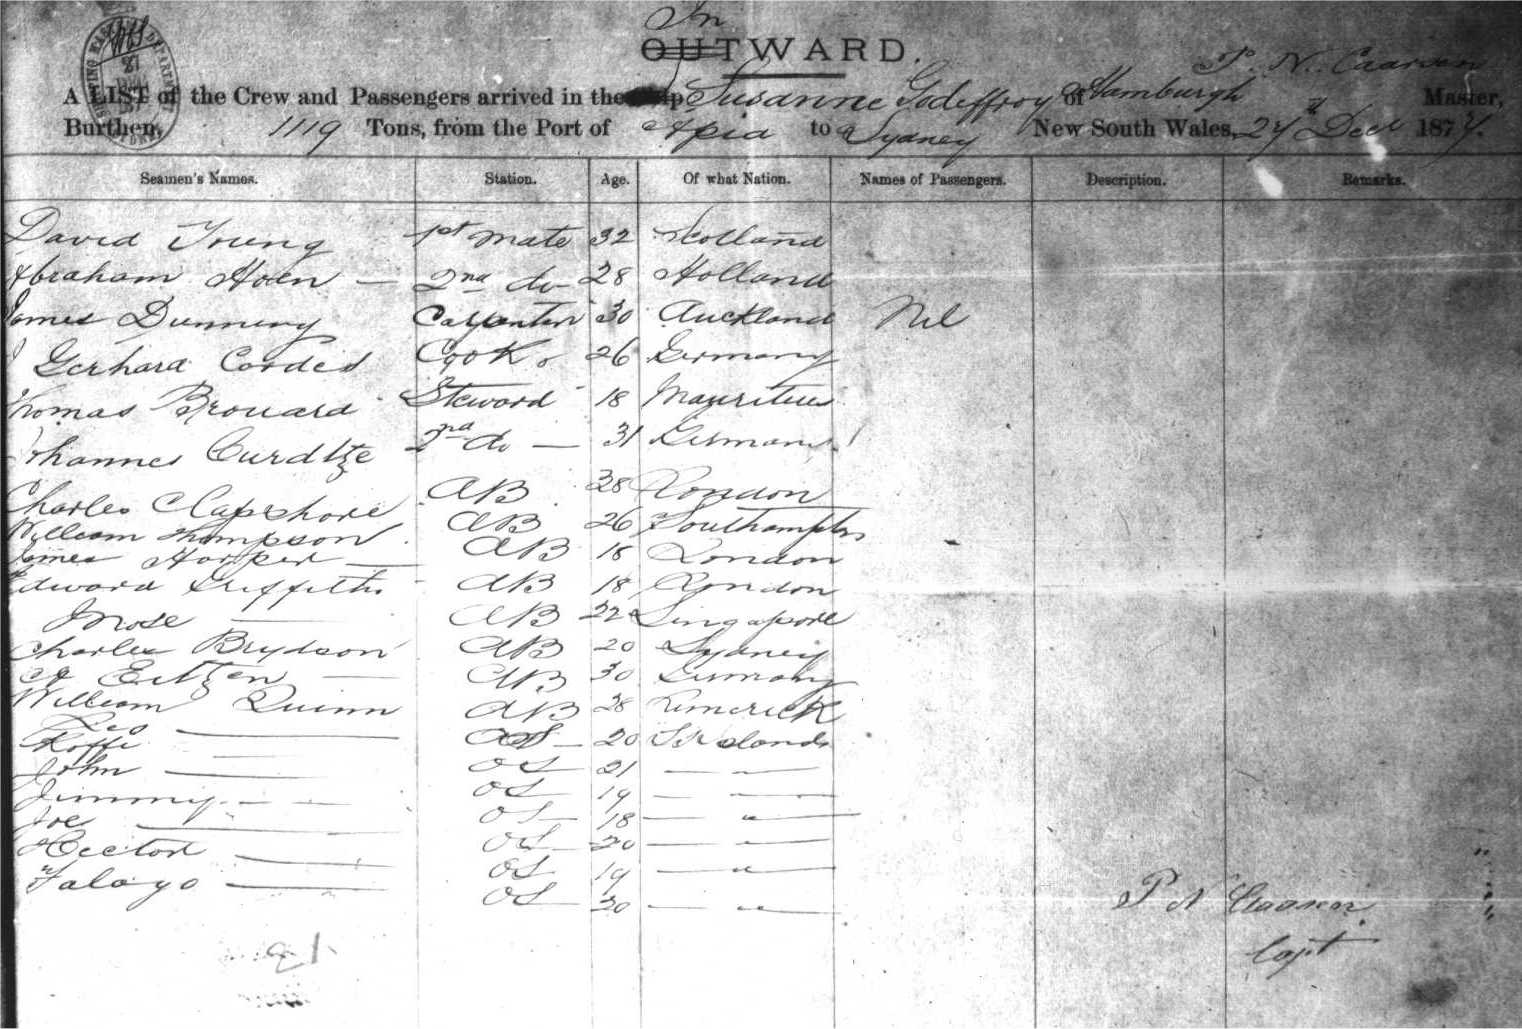 In
OUTWARD.
P. N. Caarsen
A LIST of the Crew and Passengers arrived in the Ship Susanne Godeffroy of Hamburgh Master,
Burthen, 1119 Tons, from the Port of Apia to Sydney New South Wales, 27th Decr 1877.
Seamen's Names. Station. Age. Of what Nation. Names of Passengers. Description. Remarks.
David Young 1st mate 32 Scotland
Abraham Hoen — 2nd do 28 Holland
James Dunneny Carpenter 30 Auckland Nil
J Gerhard Cordes Cook 26 Germany
Thomas Brouard Steward 18 Mauritius
Johannes Curdtze 2nd do — 31 Germany
Charles Clapshore AB 28 London
William Thompson AB 26 Southampton
James Harper — AB 18 London
Edward Griffiths AB 18 London
Mose — AB 22 Singapore
Charles Brydson AB 20 Sydney
Eitzen — AB 30 Germany
William Quinn AB 28 Limerick
Leo — OS — 20 S S Islands
Koffe OS 21 — " —
John — OS 19 — " —
Jimmy — — OS 18 — " —
Joe — OS 20 — " —
Hector — OS 19 — " —
Falayo — OS 20 — " —
P N Caarsen
Capt